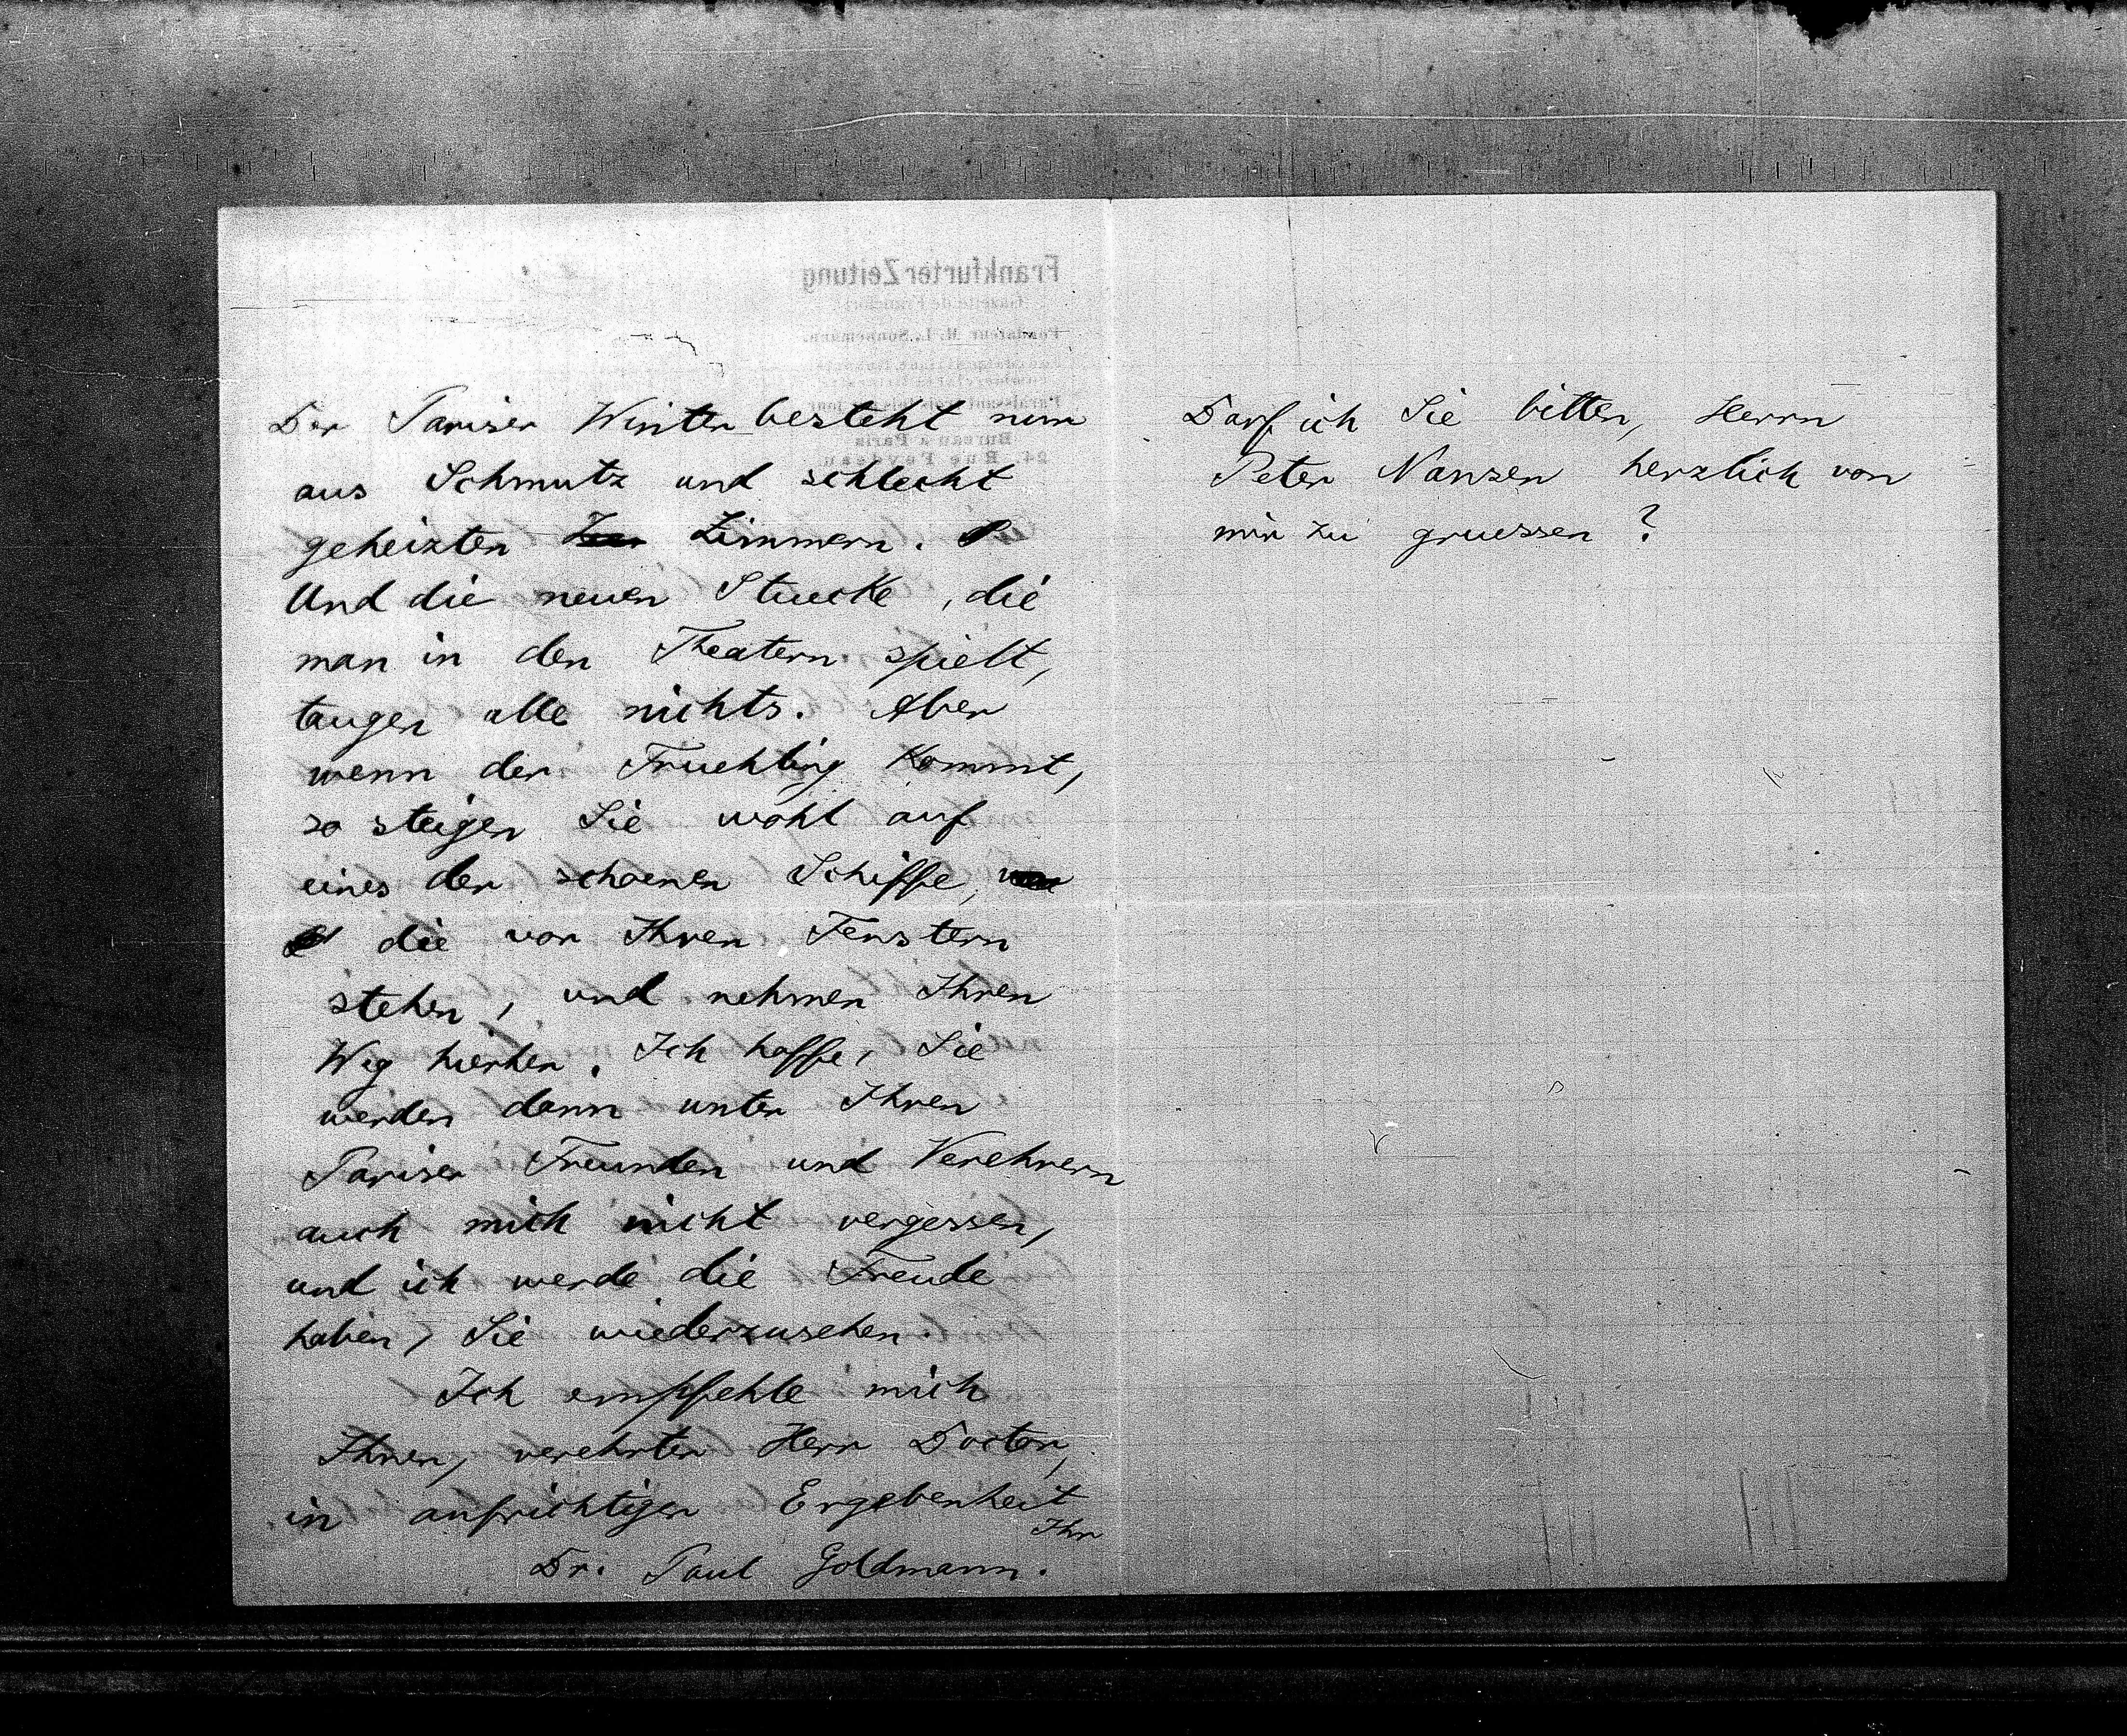 Der Pariser Winter besteht nun
aus Schmutz und schlecht
geheizten Zimmern.
Und die neuen Stuecke, die
man in den Theatern spielt,
taugen alle nichts. Aber
wenn der Fruehling kommt,
so steigen Sie wohl auf
eines der schoenen Schiffe,
die vor Ihren Fenstern
stehen, und nehmen Ihren
Weg hierher. Ich hoffe, Sie
werden dann unter Ihren
Pariser Freunden und Verehrern
auch mich nicht vergessen,
und ich werde die Freude
haben, Sie wiederzusehen.
Ich empfehle mich
Ihnen, verehrter Herr Doctor,
in aufrichtiger Ergebenheit
Ihr
Dr. Paul Goldmann.
Darf ich Sie bitten, Herrn
Peter Nansen herzlich von
mir zu gruessen?
Frankfurter Zeitung
Fondateur M. L. Sonnemann.
Bureau à Paris
24. Rue Feydeau